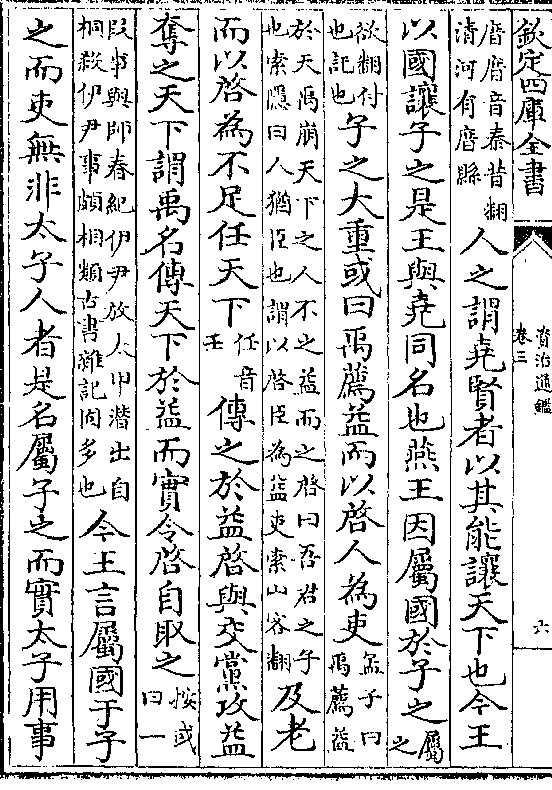 欽定四庫全書
資治通鑑
卷三
六
厝厝音秦昔翻
清河有厝縣
人之謂堯賢者以其能讓天下也今王
以國讓子之是王與堯同名也燕王因屬國於子之
屬
之
欲翻付
也託也
子之大重或曰禹薦益而以啓人為吏
孟子曰
禹薦益
於天禹崩天下之人不之益而之啓曰吾君之子
也索隱曰人猶臣也謂以啓臣為益吏索山客翻
及老
而以啓為不足任天下
任音
壬
傳之於益啓與交黨攻益
奪之天下謂禹名傳天下於益而實令啓自取之
按或
曰一
段事與師春紀伊尹放太甲潛出自
桐殺伊尹事頗相類古書雜記固多也
今王言屬國于子
之而吏無非太子人者是名屬子之而實太子用事